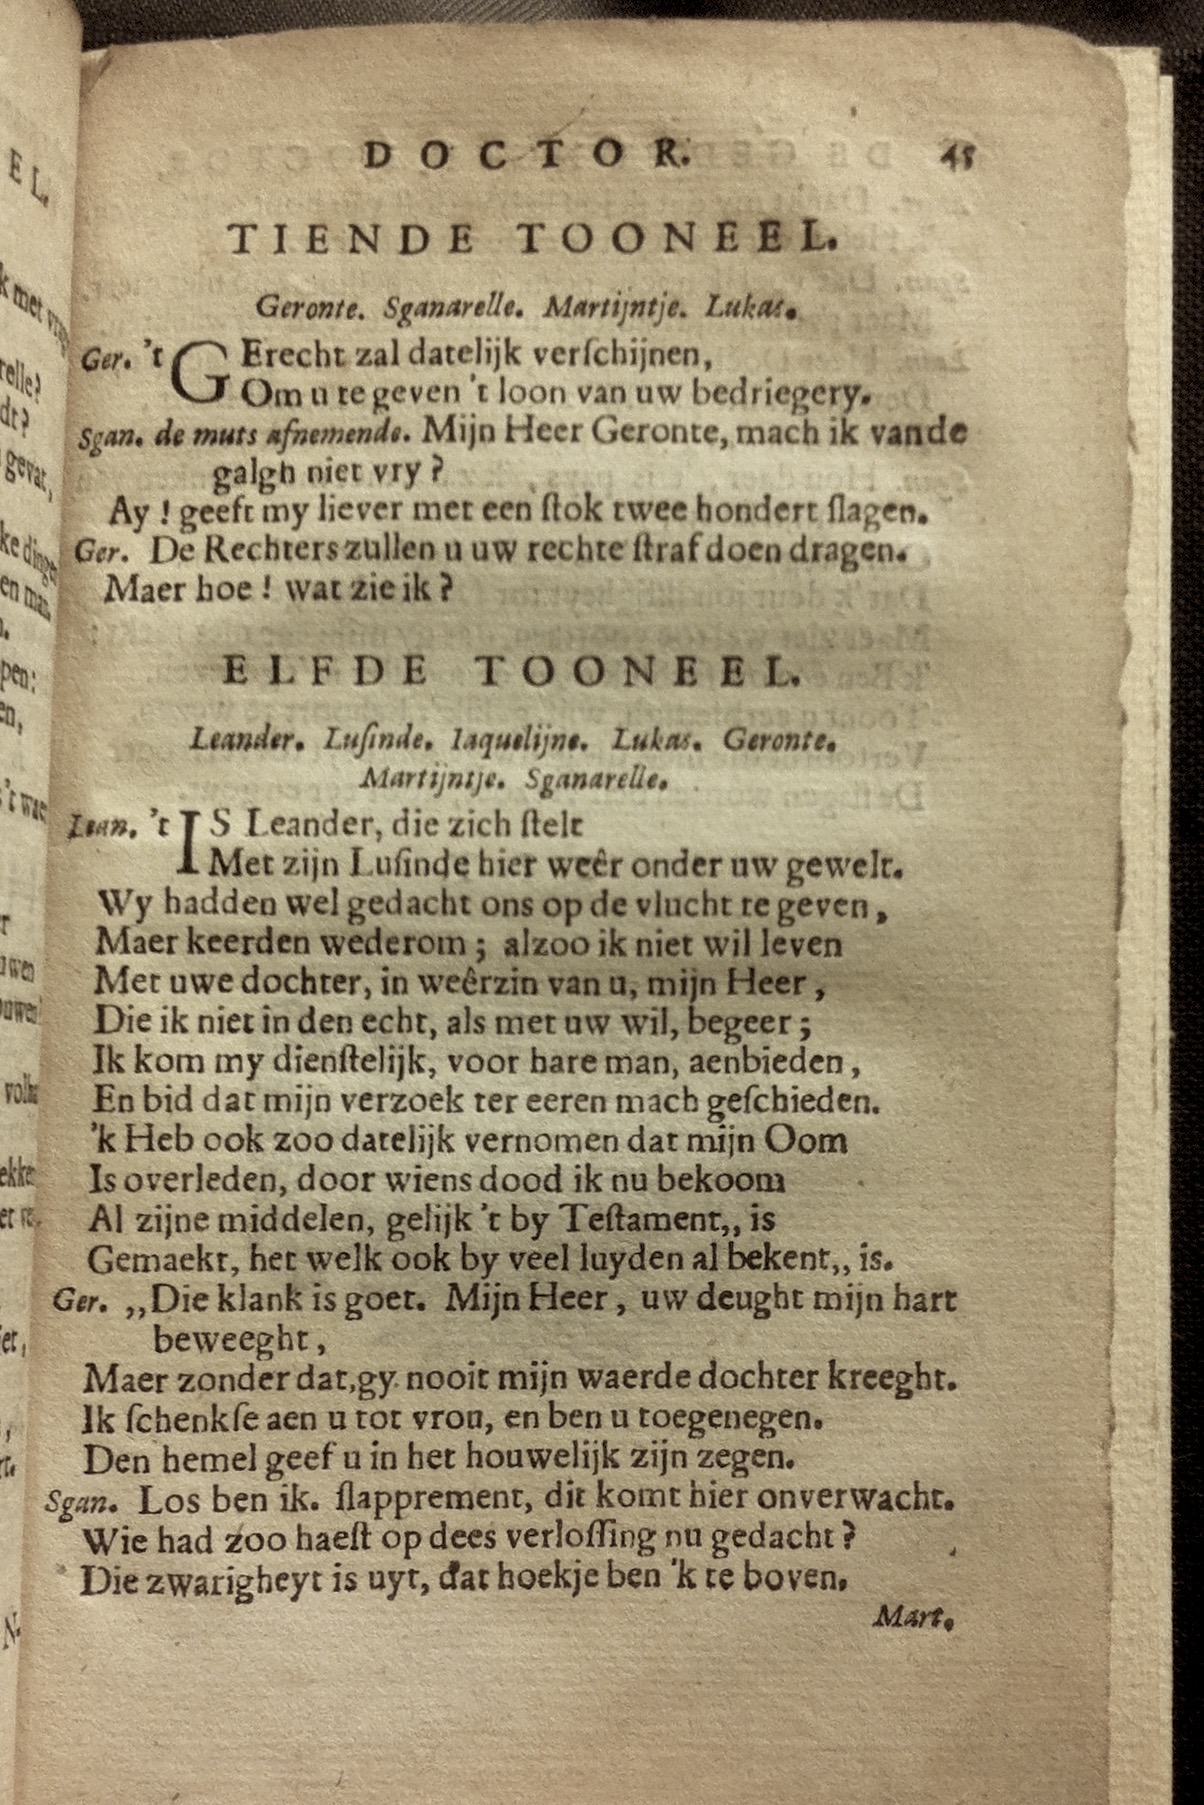 DOCTOR. 45
TIENDE TOONEEL.
Geronte. Sganarelle. Martijntje. Lukas.
Ger. 't GErecht zal datelijk verſchijnen,
Om u te geven 't loon van uw bedriegery.
Sgan. de muts afnemende. Mijn Heer Geronte, mach ik vande
galgh niet vry?
Ay! geeft my liever met een ſtok twee hondert ſlagen.
Ger. De Rechters zullen u uw rechte ſtraf doen dragen.
Maer hoe! wat zie ik?
ELFDE TOONEEL.
Leander. Luſinde. Iaquelijne. Lukas. Geronte.
Martijntje. Sganarelle.
Lean. 't IS Leander, die zich ſtelt
Met zijn Luſinde hier weêr onder uw gewelt.
Wy hadden wel gedacht ons op de vlucht te geven,
Maer keerden wederom; alzoo ik niet wil leven
Met uwe dochter, in weêrzin van u, mijn Heer,
Die ik niet in den echt, als met uw wil, begeer;
Ik kom my dienſtelijk, voor hare man, aenbieden,
En bid dat mijn verzoek ter eeren mach geſchieden.
'k Heb ook zoo datelijk vernomen dat mijn Oom
Is overleden, door wiens dood ik nu bekoom
Al zijne middelen, gelijk 't by Teſtament,, is
Gemaekt, het welk ook by veel luyden al bekent,, is.
Ger. ,,Die klank is goet. Mijn Heer, uw deught mijn hart
beweeght,
Maer zonder dat, gy nooit mijn waerde dochter kreeght.
Ik ſchenkſe aen u tot vrou, en ben u toegenegen.
Den hemel geef u in het houwelijk zijn zegen.
Sgan. Los ben ik. ſlapprement, dit komt hier onverwacht.
Wie had zoo haeſt op dees verloſſing nu gedacht?
Die zwarigheyt is uyt, dat hoekje ben 'k te boven.
Mart.